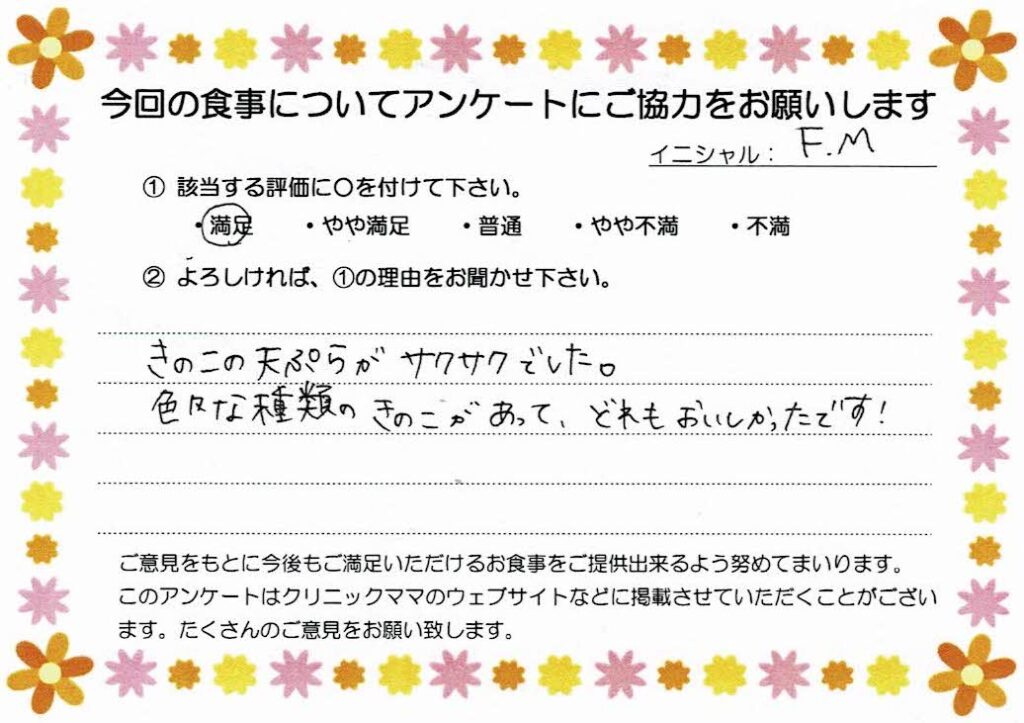 今回の食事についてアンケートにご協力をお願いします
イニシャル： F.M
① 該当する評価に〇を付けて下さい。
・満足 ・やや満足 ・普通 ・やや不満 ・不満
② よろしければ、①の理由をお聞かせ下さい。
きのこの天ぷらがサクサクでした。
色々な種類のきのこがあって、どれもおいしかったです！
ご意見をもとに今後もご満足いただけるお食事をご提供出来るよう努めてまいります。
このアンケートはクリニックママのウェブサイトなどに掲載させていただくことがござい
ます。たくさんのご意見をお願い致します。